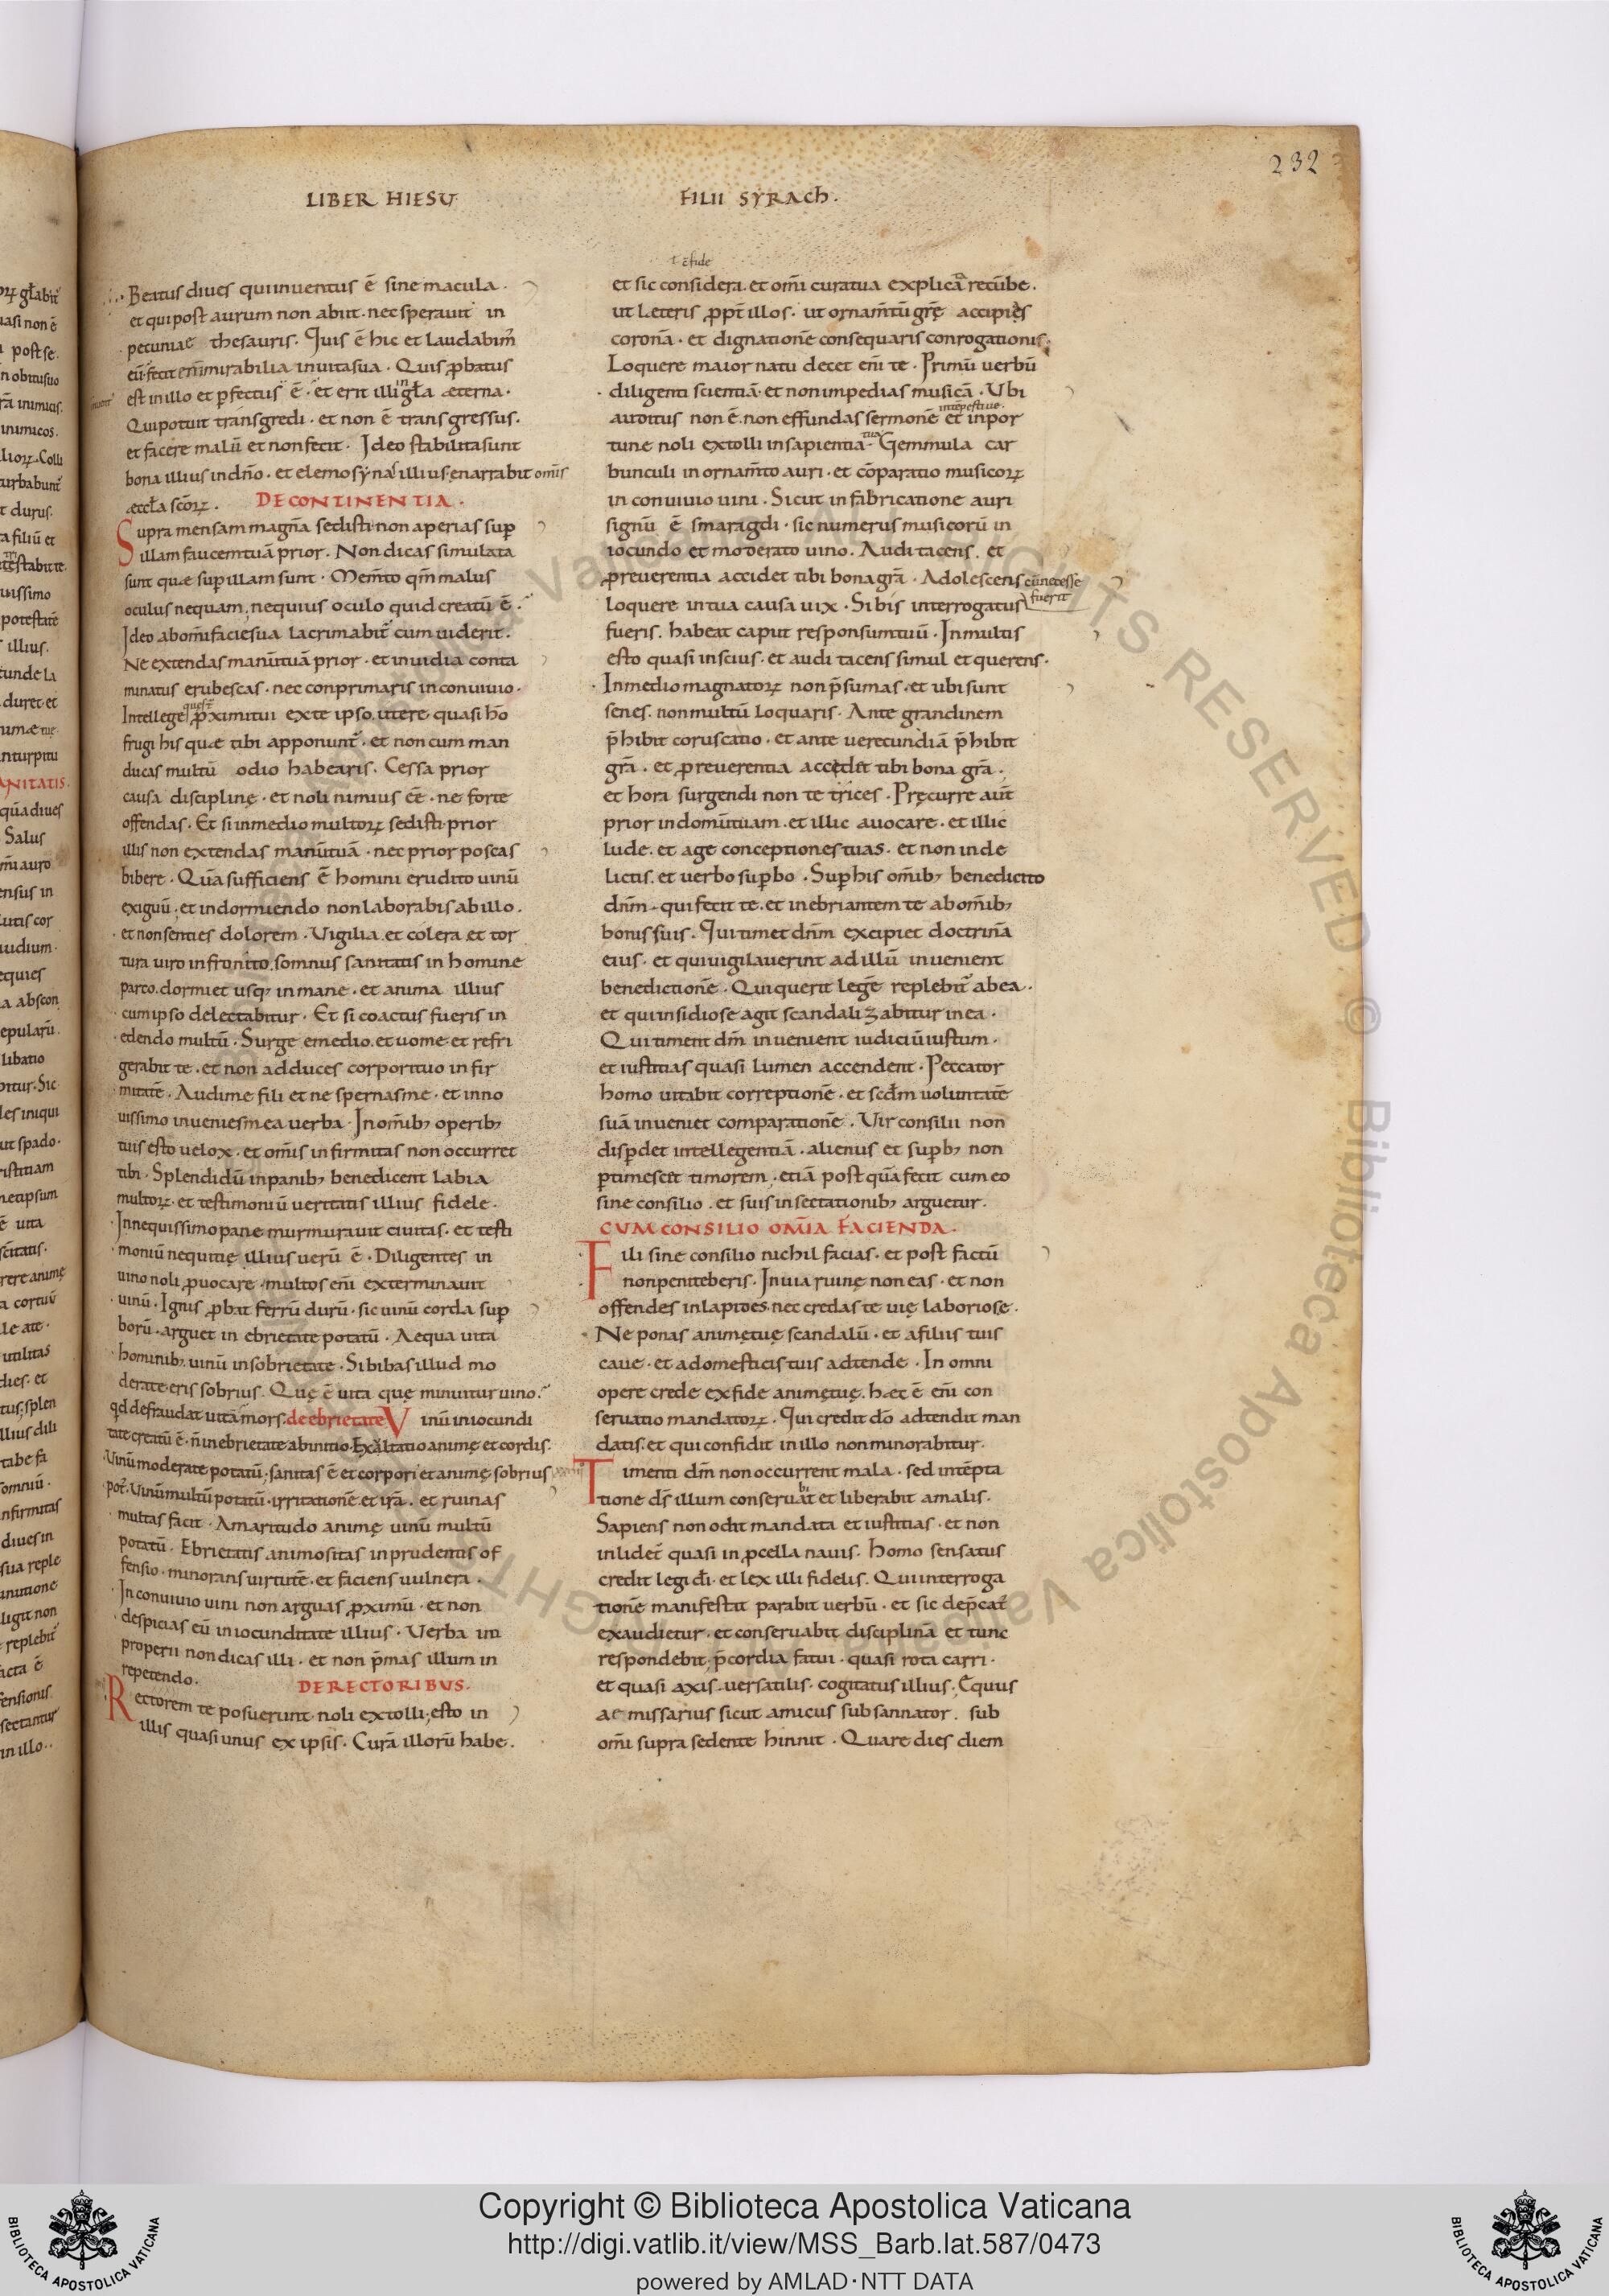 232
LIBER HIESU
FILII SYRACh.
Beatus diues qui inuentus ē sine macula.
et qui post aurum non abiit. nec sperauit in
pecuniae thesauris. Quis ē hic et laudabim̃
eū. fecit enim mirabilia in uita sua. Quis ꝓbatus
est in illo et ꝑfectus ē. et erit illi in gl̄a æterna.
Qui potuit transgredi. et non ē transgressus.
et facere malū et non fecit. Ideo stabilita sunt
bona illius in dñο. et elemosynas illius enarrabit om̄is
æccl̄a sc̄oꝝ. DE CONTINENTIA.
Supra mensam magnā sedisti. non aperias suꝑ
illam faucem tuā prior. Non dicas simulata
sunt quæ suꝑ illam sunt. Mem̄to qm̄ malus
oculus nequam; nequius oculo quid creatū ē.
Ideo ab om̄i facie sua lacrimabit̄ cum uiderit.
Ne extendas manū tuā prior. et inuidia conta
minatus erubescas. nec conprimaris in conuiuio.
Intellege quę st̄ ꝓximi tui ex te ipso. utere quasi hō
frugi his quæ tibi apponunt̄. et non cum man
ducas multū odio habearis. Cessa prior
causa disciplinę. et noli nimius eē. ne forte
offendas. Et si in medio multoꝝ sedisti. prior
illis non extendas manū tuā. nec prior poscas
bibere. Quā sufficiens ē homini erudito uinū
exiguū. et in dormiendo non laborabis ab illo.
et non senties dolorem. Uigilia et colera et tor
tura uiro infrunito. somnus sanitatis in homine
parco. dormiet usq; in mane. et anima illius
cum ipso delectabitur. Et si coactus fueris in
edendo multū. Surge e medio. et uome. et refri
gerabit te. et non adduces corpori tuo infir
mitatē. Audi me fili et ne spernas me. et in no
uissimo inuenies mea uerba. In om̄ib; operib;
tuis esto uelox. et om̄is infirmitas non occurret
tibi. Splendidū in panib; benedicent labia
multoꝝ. et testimoniū ueritatis illius fidele.
In nequissimo pane murmurauit ciuitas. et testi
moniū nequitię illius uerū ē. Diligentes in
uino noli ꝓuocare. multos eni exterminauit
uinū. Ignis ꝓbat ferrū durū. sic uinū corda suꝑ
borū. arguet in ebrietate potatū. Aequa uita
hominib; uinū in sobrietate. Si bibas illud mo
derate eris sobrius. Quę ē uita quę minuitur uino.
qd defraudat uitā mors. de ebrietate Vinū in iocundi
tate creatū ē. ñ in ebrietate ab initio. Exaltatio animę et cordis.
Uinū moderate potatū. sanitas ē et corpori et animę sobrius
pot̄. Uinū multū potatū. irritationē et irā. et ruinas
multas facit. Amaritudo animę uinū multū
potatū. Ebrietatis animositas inprudentis of
fensio. minorans uirtutē. et faciens uulnera.
In conuiuio uini non arguas ꝓximū. et non
despicias eū in iocunditate illius. Uerba im
properii non dicas illi. et non p̄mas illum in
repetendo. DE RECTORIBUS.
Rectorem te posuerunt. noli extolli; esto in
illis quasi unus ex ipsis. Curā illorū habe.
ł cōfide
et sic considera. et om̄i cura tua explicata recūbe.
ut læteris ꝓpt̄ illos. ut ornam̄tū gr̄ę accipies
coronā. et dignationē consequaris conrogationis.
Loquere maior natu decet eni te. Primū uerbū
diligenti scientiā. et non impedias musicā. Ubi
auditus non ē. non effundas sermonē et inpor
intēpestiue.
tune noli extolli in sapientia tua. Gemmula car
bunculi in ornam̄to auri. et cōparatio musicoꝝ
in conuiuio uini. Sicut in fabricatione auri
signū ē smaragdi. sic numerus musicorū in
iocundo et moderato uino. Audi tacens. et
ꝓ reuerentia accidet tibi bona gr̄a. Adolescens cū necesse
loquere in tua causa uix. Si bis interrogatus fuerit
fueris. habeat caput responsum tuū. In multis
esto quasi inscius. et audi tacens simul et querens.
In medio magnatoꝝ non p̄sumas. et ubi sunt
senes. non multū loquaris. Ante grandinem
p̄hibit coruscatio. et ante uerecundiā p̄hibit
gr̄a. et ꝓ reuerentia accedit tibi bona gr̄a.
et hora surgendi non te trices. Pręcurre aut̄
prior in domū tuam. et illic auocare. et illic
lude. et age conceptiones tuas. et non in de
lictis. et uerbo suꝑbo. Suꝑ his om̄ib; benedicito
dn̄m. qui fecit te. et inebriantem te ab om̄ib;
bonis suis. Qui timet dn̄m excipiet doctrinā
eius. et qui uigilauerint ad illū inuenient
benedictionē. Qui querit legē replebit̄ ab ea.
et qui insidiose agit scandalizabitur in ea.
Qui timent dm̄ inuenient iudiciū iustum.
et iustitias quasi lumen accendent. Peccator
homo uitabit correptionē. et scdm̄ uoluntatē
suā inueniet comparationē. Uir consilii non
disꝑdet intellegentiā. alienus et suꝑb; non
ꝑtimescet timorem. etiā post quā fecit cum eo
sine consilio. et suis insectationib; arguetur.
CUM CONSILIO OM̄IA FACIENDA.
Fili sine consilio nichil facias. et post factū
non peniteberis. In uia ruinę non eas. et non
offendes in lapides. nec credas te uię laboriose.
Ne ponas animę tuę scandalū. et a filiis tuis
caue. et a domesticis tuis adtende. In omni
opere crede ex fide animę tuę. hæc ē eni con
seruatio mandatoꝝ. Qui credit dō adtendit man
datis. et qui confidit in illo non minorabitur.
Timenti dm̄ non occurrent mala. sed in tēpta
tione ds̄ illum conseruabit et liberabit a malis.
Sapiens non odit mandata et iustitias. et non
inlidet̄ quasi in ꝓcella nauis. Homo sensatus
credit legi dī. et lex illi fidelis. Qui interroga
tionē manifestat parabit uerbū. et sic dep̄cat̄
exaudietur. et conseruabit disciplinā et tunc
respondebit. p̄cordia fatui. quasi rota carri.
et quasi axis uersatilis. cogitatus illius. Equus
aemissarius sicut amicus subsannator. sub
om̄i supra sedente hinnit. Quare dies diem
Copyright © Biblioteca Apostolica Vaticana
http://digi.vatlib.it/view/MSS_Barb.lat.587/0473
powered by AMLAD·NTT DATA